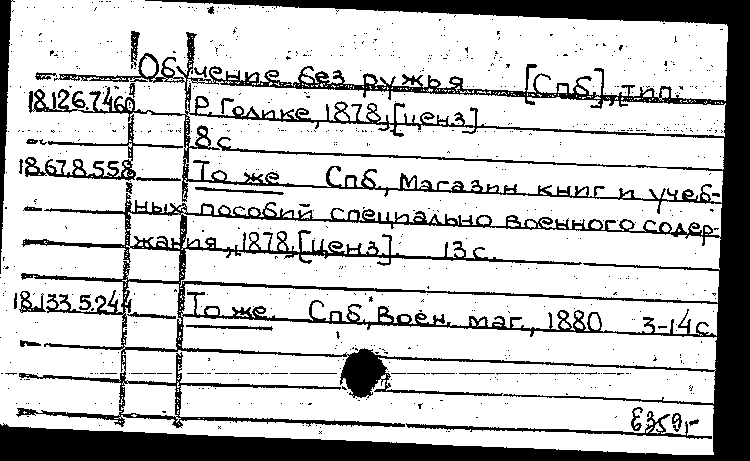 Обучение без ружья [Спб.], тип.
18.126.7.460 Р. Голике, 1878, [ценз].
8 с.
18.67.8.558 То же Спб., Магазин книг и учеб-
ных пособий специально военного содер-
жания, 1878, [ценз]. 13 с.
18.133.5.244 То же. Спб., Воен. маг., 1880 3-14 с.